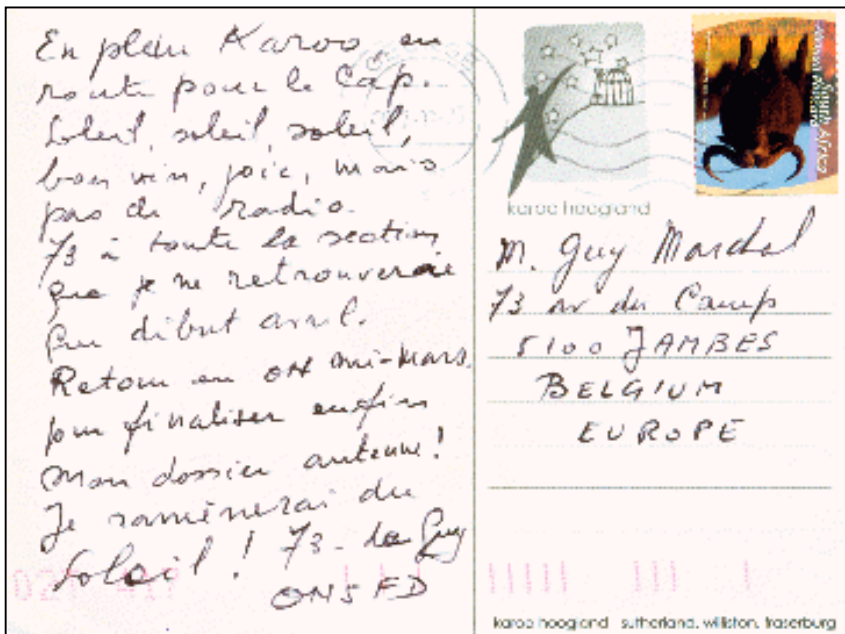 En plein Karoo, en
route pour le Cap.
Soleil, soleil, soleil,
bon vin, joie, mais
pas de radio.
73 à toute la section
que je ne retrouverai
qu'en début avril.
Retour en ON mi-mars.
pour finaliser enfin
mon dossier antenne!
Je ramènerai du
soleil! 73 - Guy
ON5FD
karoo hoogland
South Africa
M. Guy Marchal
73 av du Camp
5100 JAMBES
BELGIUM
EUROPE
karoo hoogland sutherland, williston, fraserburg